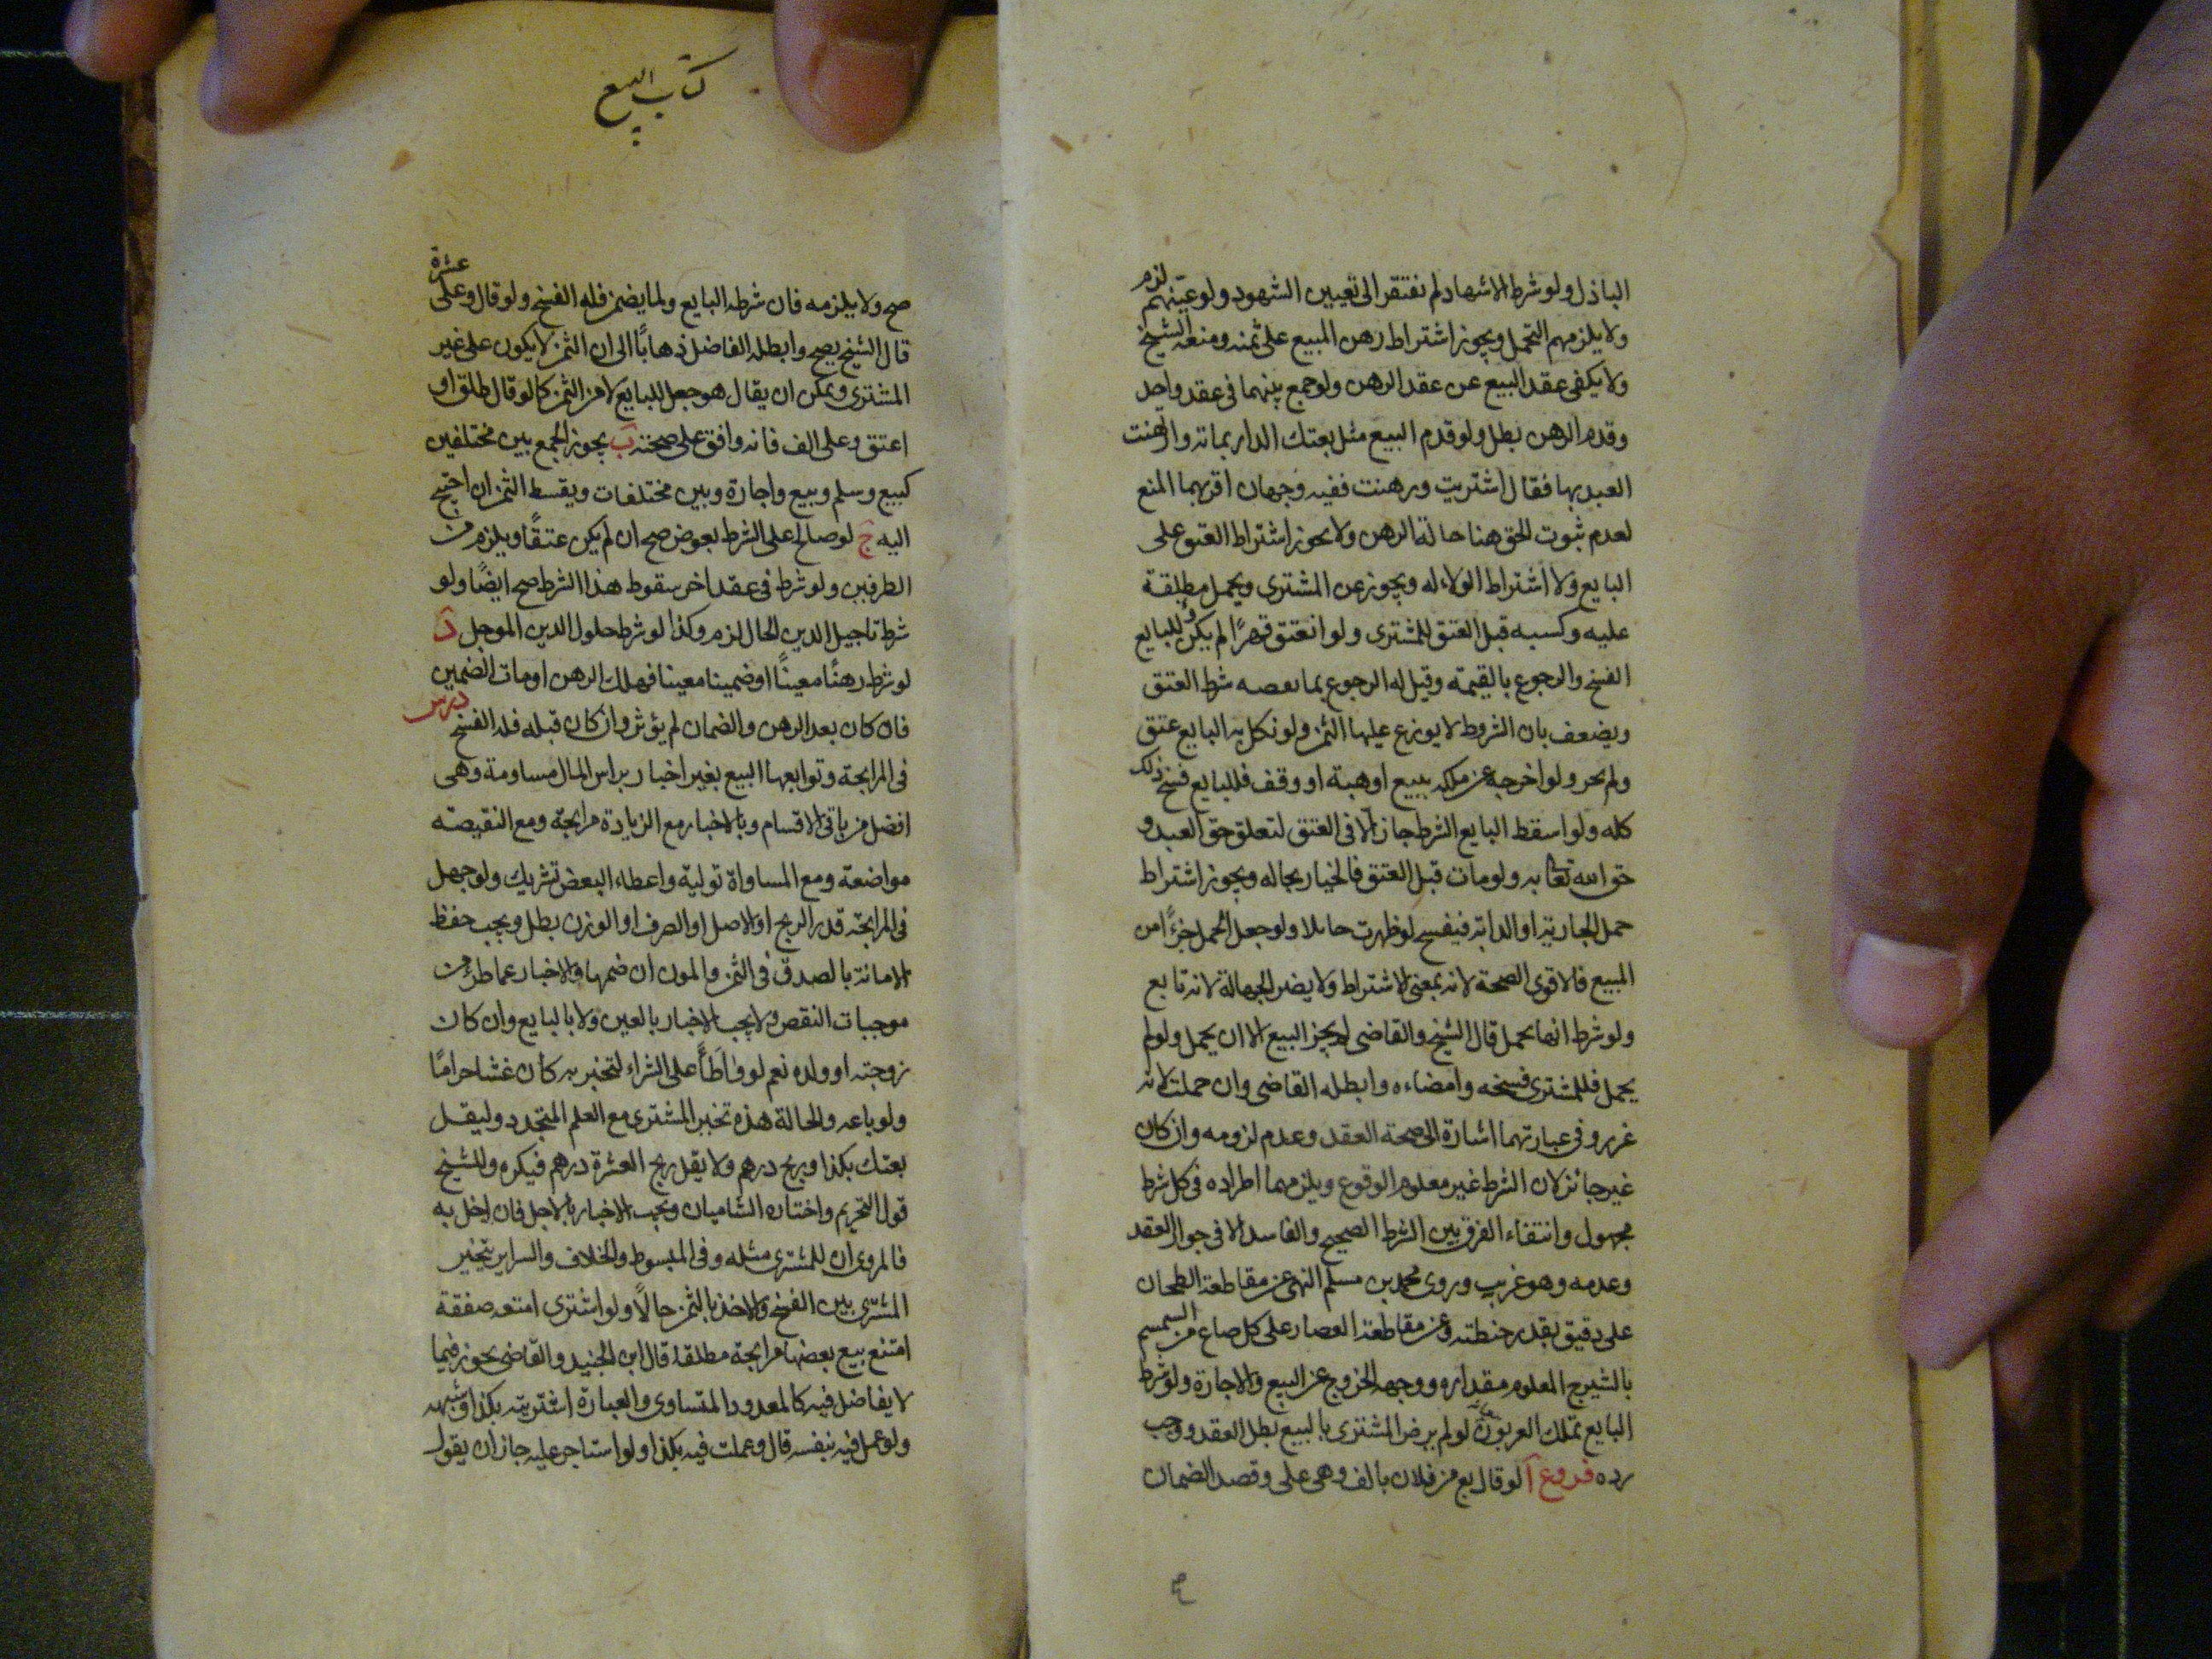 الباذل ولو شرط الاشهاد لم نفتقر الى تعيين الشهود ولو عيّنهم لزم
ولا يلزمهم التحمل ويجوز اشتراط رهن المبيع على ثمنه ومنعه الشيخ
ولا يكفى عقد البيع عن عقد الرهن ولو جمع بينهما فى عقد واحد
وقدم الرهن بطل ولو قدم البيع مثل بعتك الدار بماته وارتهنت
العبد بها فقال اشتريت ورهنت ففيه وجهان اقربهما المنع
لعدم ثبوت الحق هنا حالة الرهن ولا يجوز اشتراط العتق على
البايع ولا اشتراط الولاء له ويجوز عن المشترى ويحمل مطلقة
عليه وكسبه قبل العتق للمشترى ولو انعتق قهرًا لم يكن وللبايع
الفسخ والرجوع بالقيمة وقيل له الرجوع بما نقصه شرط العتق
ويضعف بان الشروط لا يوزع عليها الثمن ولو نكل به البايع عتق
ولم يحز ولو اخرجه عن ملكه ببيع او هبة او وقف فللبايع فسخ ذلك
كله ولو اسقط البايع الشرط جاز الا فى العتق لتعلق حق العبد و
حق الله تعا به ولو مات قبل العتق فالخيار بحاله ويجوز اشتراط
حمل الجارية او الدابة فيفسخ لو ظهرت حائلا ولو جعل الحمل جزءًا من
المبيع فالاقوى الصحة لانه بمعنى الاشتراط ولا يضر الجهالة لانه تابع
ولو شرط انها تحمل قال الشيخ والقاضى لم يجز البيع الا ان يحمل ولو لم
يحمل فللمشترى فسخه وامضاءه وابطله القاضى وان حملت لانه
غرر وفى عبارتهما اشارة الى صحة العقد وعدم لزومه وان كان
غير جائز لان الشرط غير معلوم الوقوع ويلزمهما اطراده فى كل شرط
مجهول وانتفاء الفرق بين الشرط الصحيح والفاسد الا فى جواز العقد
وعدمه وهو غريب وروى محمد بن مسلم النهى عن مقاطعة الطحان
على دقيق بقدر حنطته وعن مقاطعة العصار على كل صاع من السمسم
بالشيرج المعلوم مقداره ووجهه الخروج عن البيع والاجارة ولو شرط
البايع تملك العربون لو لم يرض المشترى بالبيع بطل العقد ووجب
رده فروع آ لو قال بع من فلان بالف وهى على وقصد الضمان
كتاب البيع
صح ولا يلزمه فان شرطه البايع ولما يضمن فله الفسخ ولو قال وعلى عشرة
قال الشيخ يصح وابطله الفاضل ذهابًا الى ان الثمن لا يكون على غير
المشترى ويمكن ان يقال هو جعل للبايع لا من الثمن كما لو قال طلق او
اعتق وعلى الف فانه وافق على صحته ب يجوز الجمع بين مختلفين
كبيع وسلم وبيع واجارة وبين مختلفات ويقسط الثمن ان احتيج
اليه ج لو صالح على الشرط بعوض صح ان لم يكن عتقًا ويلزم من
الطرفين ولو شرط فى عقد اخر سقوط هذا الشرط صح ايضًا ولو
شرط تاجيل الدين الحال لزم وكذا لو شرط حلول الدين الموجل د
لو شرط رهنًا معينًا او ضمينا معينا فهلك الرهن او مات الضمين
فان كان بعد الرهن والضمان لم يؤثر وان كان قبله فله الفسخ درس
فى المرابحة وتوابعها البيع بغير اخبار براس المال مساومة وهى
افضل من باقى الاقسام وبالاخبار مع الزيادة مرابحة ومع النقيصة
مواضعة ومع المساواة تولية واعطاء البعض تشريك ولو جهل
فى المرابحة قدر الربح او الاصل او الصرف او الوزن بطل ويجب حفظ
الامانة بالصدق فى الثمن والمون ان ضمها والاخبار عما طرء من
موجبات النقص ولا يجب الاخبار بالعين ولا بالبايع وان كان
زوجته او ولده نعم لو واطأ على الشراء لتخبر به كان غشا حرامًا
ولو باعه والحالة هذه تخير المشترى مع العلم المتجدد وليقل
بعتك بكذا وربح درهم ولا يقل ربح العشرة درهم فيكره وللشيخ
قول التحريم واختاره الشاميان ويجب الاخبار بالاجل فان اخل به
فالمروى ان للمشترى مثله وفى المبسوط والخلاف والسراير يتخير
المشترى بين الفسخ والاخذ بالثمن حالًا ولو اشترى امتعه صفقة
امتنع بيع بعضها مرابحة مطلقا قال ابن الجنيد والقاضى يجوز فيما
لا يفاضل فيه كالمعدود المتساوى والعبارة اشتريته بكذا وشبهه
ولو عمل فيه بنفسه قال وعملت فيه بكذا ولو استاجر عليه جاز ان يقول